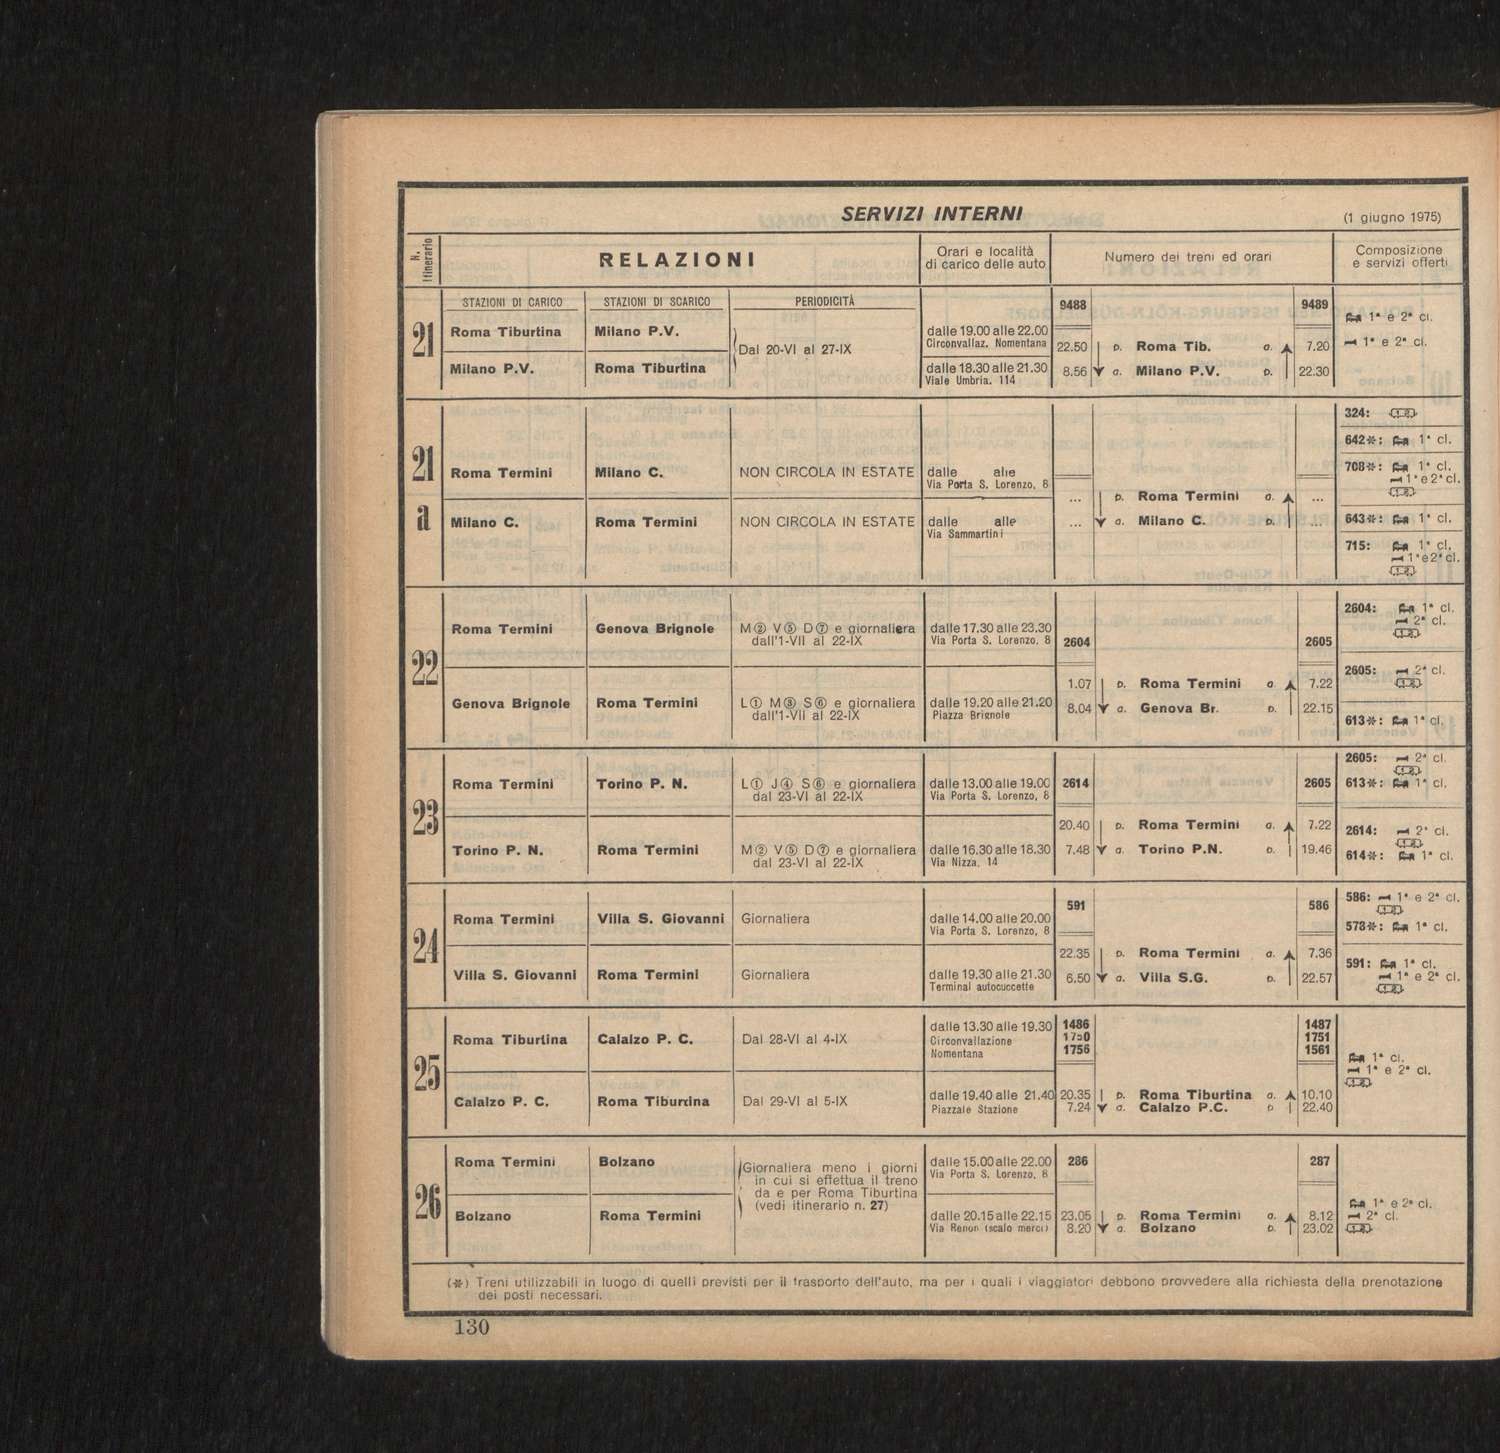 SERVIZI INTERNI
(1 giugno 1975)
N. Itinerario
RELAZIONI
Orari e località
di carico delle auto
Numero dei treni ed orari
Composizione
e servizi offerti
STAZIONI DI CARICO STAZIONI DI SCARICO PERIODICITÀ
21
Roma Tiburtina Milano P.V.
Milano P.V. Roma Tiburtina
Dal 20-VI al 27-IX
dalle 19.00 alle 22.00
Circonvallaz. Nomentana
dalle 18.30 alle 21.30
Viale Umbria, 114
9488 9489
22.50 p. Roma Tib. a. 7.20
8.56 a. Milano P.V. p. 22.30
1ª e 2ª cl.
1ª e 2ª cl.
21 a
Roma Termini Milano C. NON CIRCOLA IN ESTATE dalle alle
Via Porta S. Lorenzo, 8
Milano C. Roma Termini NON CIRCOLA IN ESTATE dalle alle
Via Sammartini
... p. Roma Termini a. ...
... a. Milano C. p. ...
324:
642*: 1ª cl.
708*: 1ª cl.
1ª e 2ª cl.
643*: 1ª cl.
715: 1ª cl.
1ª e 2ª cl.
22
Roma Termini Genova Brignole M② V⑤ D⑦ e giornaliera
dall'1-VII al 22-IX
dalle 17.30 alle 23.30
Via Porta S. Lorenzo, 8
Genova Brignole Roma Termini L① M③ S⑥ e giornaliera
dall'1-VII al 22-IX
dalle 19.20 alle 21.20
Piazza Brignole
2604 2605
1.07 p. Roma Termini a. 7.22
8.04 a. Genova Br. p. 22.15
2604: 1ª cl.
2ª cl.
2605: 2ª cl.
613*: 1ª cl.
23
Roma Termini Torino P. N. L① J④ S⑥ e giornaliera
dal 23-VI al 22-IX
dalle 13.00 alle 19.00
Via Porta S. Lorenzo, 8
Torino P. N. Roma Termini M② V⑤ D⑦ e giornaliera
dal 23-VI al 22-IX
dalle 16.30 alle 18.30
Via Nizza, 14
2614 2605
20.40 p. Roma Termini a. 7.22
7.48 a. Torino P.N. p. 19.46
2605: 2ª cl.
613*: 1ª cl.
2614: 2ª cl.
614*: 1ª cl.
24
Roma Termini Villa S. Giovanni Giornaliera
dalle 14.00 alle 20.00
Via Porta S. Lorenzo, 8
Villa S. Giovanni Roma Termini Giornaliera
dalle 19.30 alle 21.30
Terminal autocuccette
591 586
22.35 p. Roma Termini a. 7.36
6.50 a. Villa S.G. p. 22.57
586: 1ª e 2ª cl.
578*: 1ª cl.
591: 1ª cl.
1ª e 2ª cl.
25
Roma Tiburtina Calalzo P. C. Dal 28-VI al 4-IX
dalle 13.30 alle 19.30
Circonvallazione
Nomentana
Calalzo P. C. Roma Tiburtina Dal 29-VI al 5-IX
dalle 19.40 alle 21.40
Piazzale Stazione
1486 1487
1750 1751
1756 1561
20.35 p. Roma Tiburtina a. 10.10
7.24 a. Calalzo P.C. p 22.40
1ª cl.
1ª e 2ª cl.
26
Roma Termini Bolzano
Bolzano Roma Termini
Giornaliera meno i giorni
in cui si effettua il treno
da e per Roma Tiburtina
(vedi itinerario n. 27)
dalle 15.00 alle 22.00
Via Porta S. Lorenzo, 8
dalle 20.15 alle 22.15
Via Renon (scalo merci)
286 287
23.05 p. Roma Termini a. 8.12
8.20 a. Bolzano p. 23.02
1ª e 2ª cl.
2ª cl.
(*) Treni utilizzabili in luogo di quelli previsti per il trasporto dell'auto, ma per i quali i viaggiatori debbono provvedere alla richiesta della prenotazione
dei posti necessari.
130